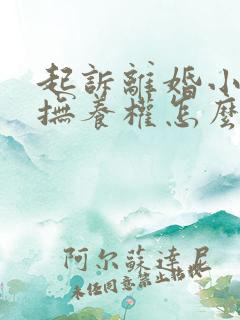 起訴離婚小
撫養權怎麼
阿尔蘇達尼
未经同意禁止转载